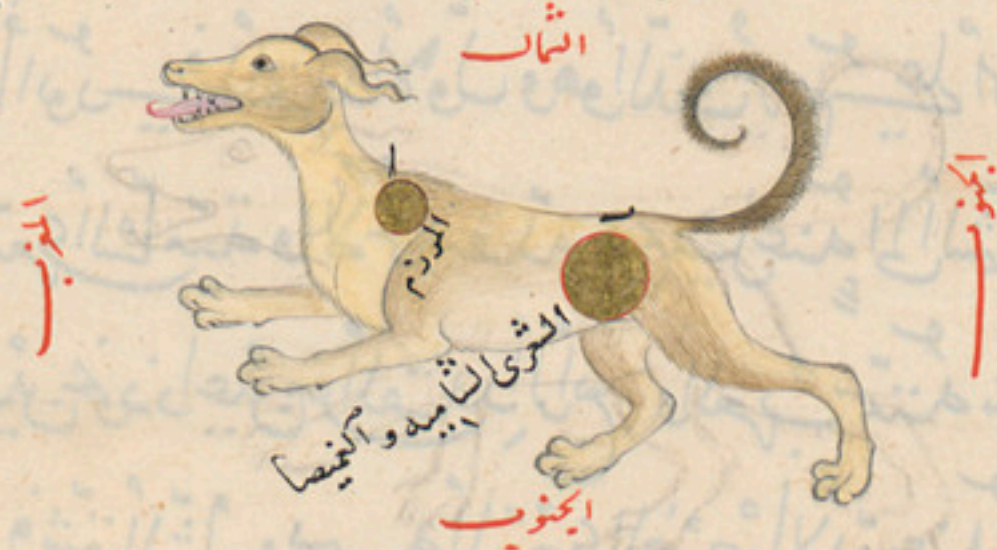 الشمال
المغرب
الجنوب
ا
المرزم
ب
الشعرى الشاميه و الغميصا
الجنوب